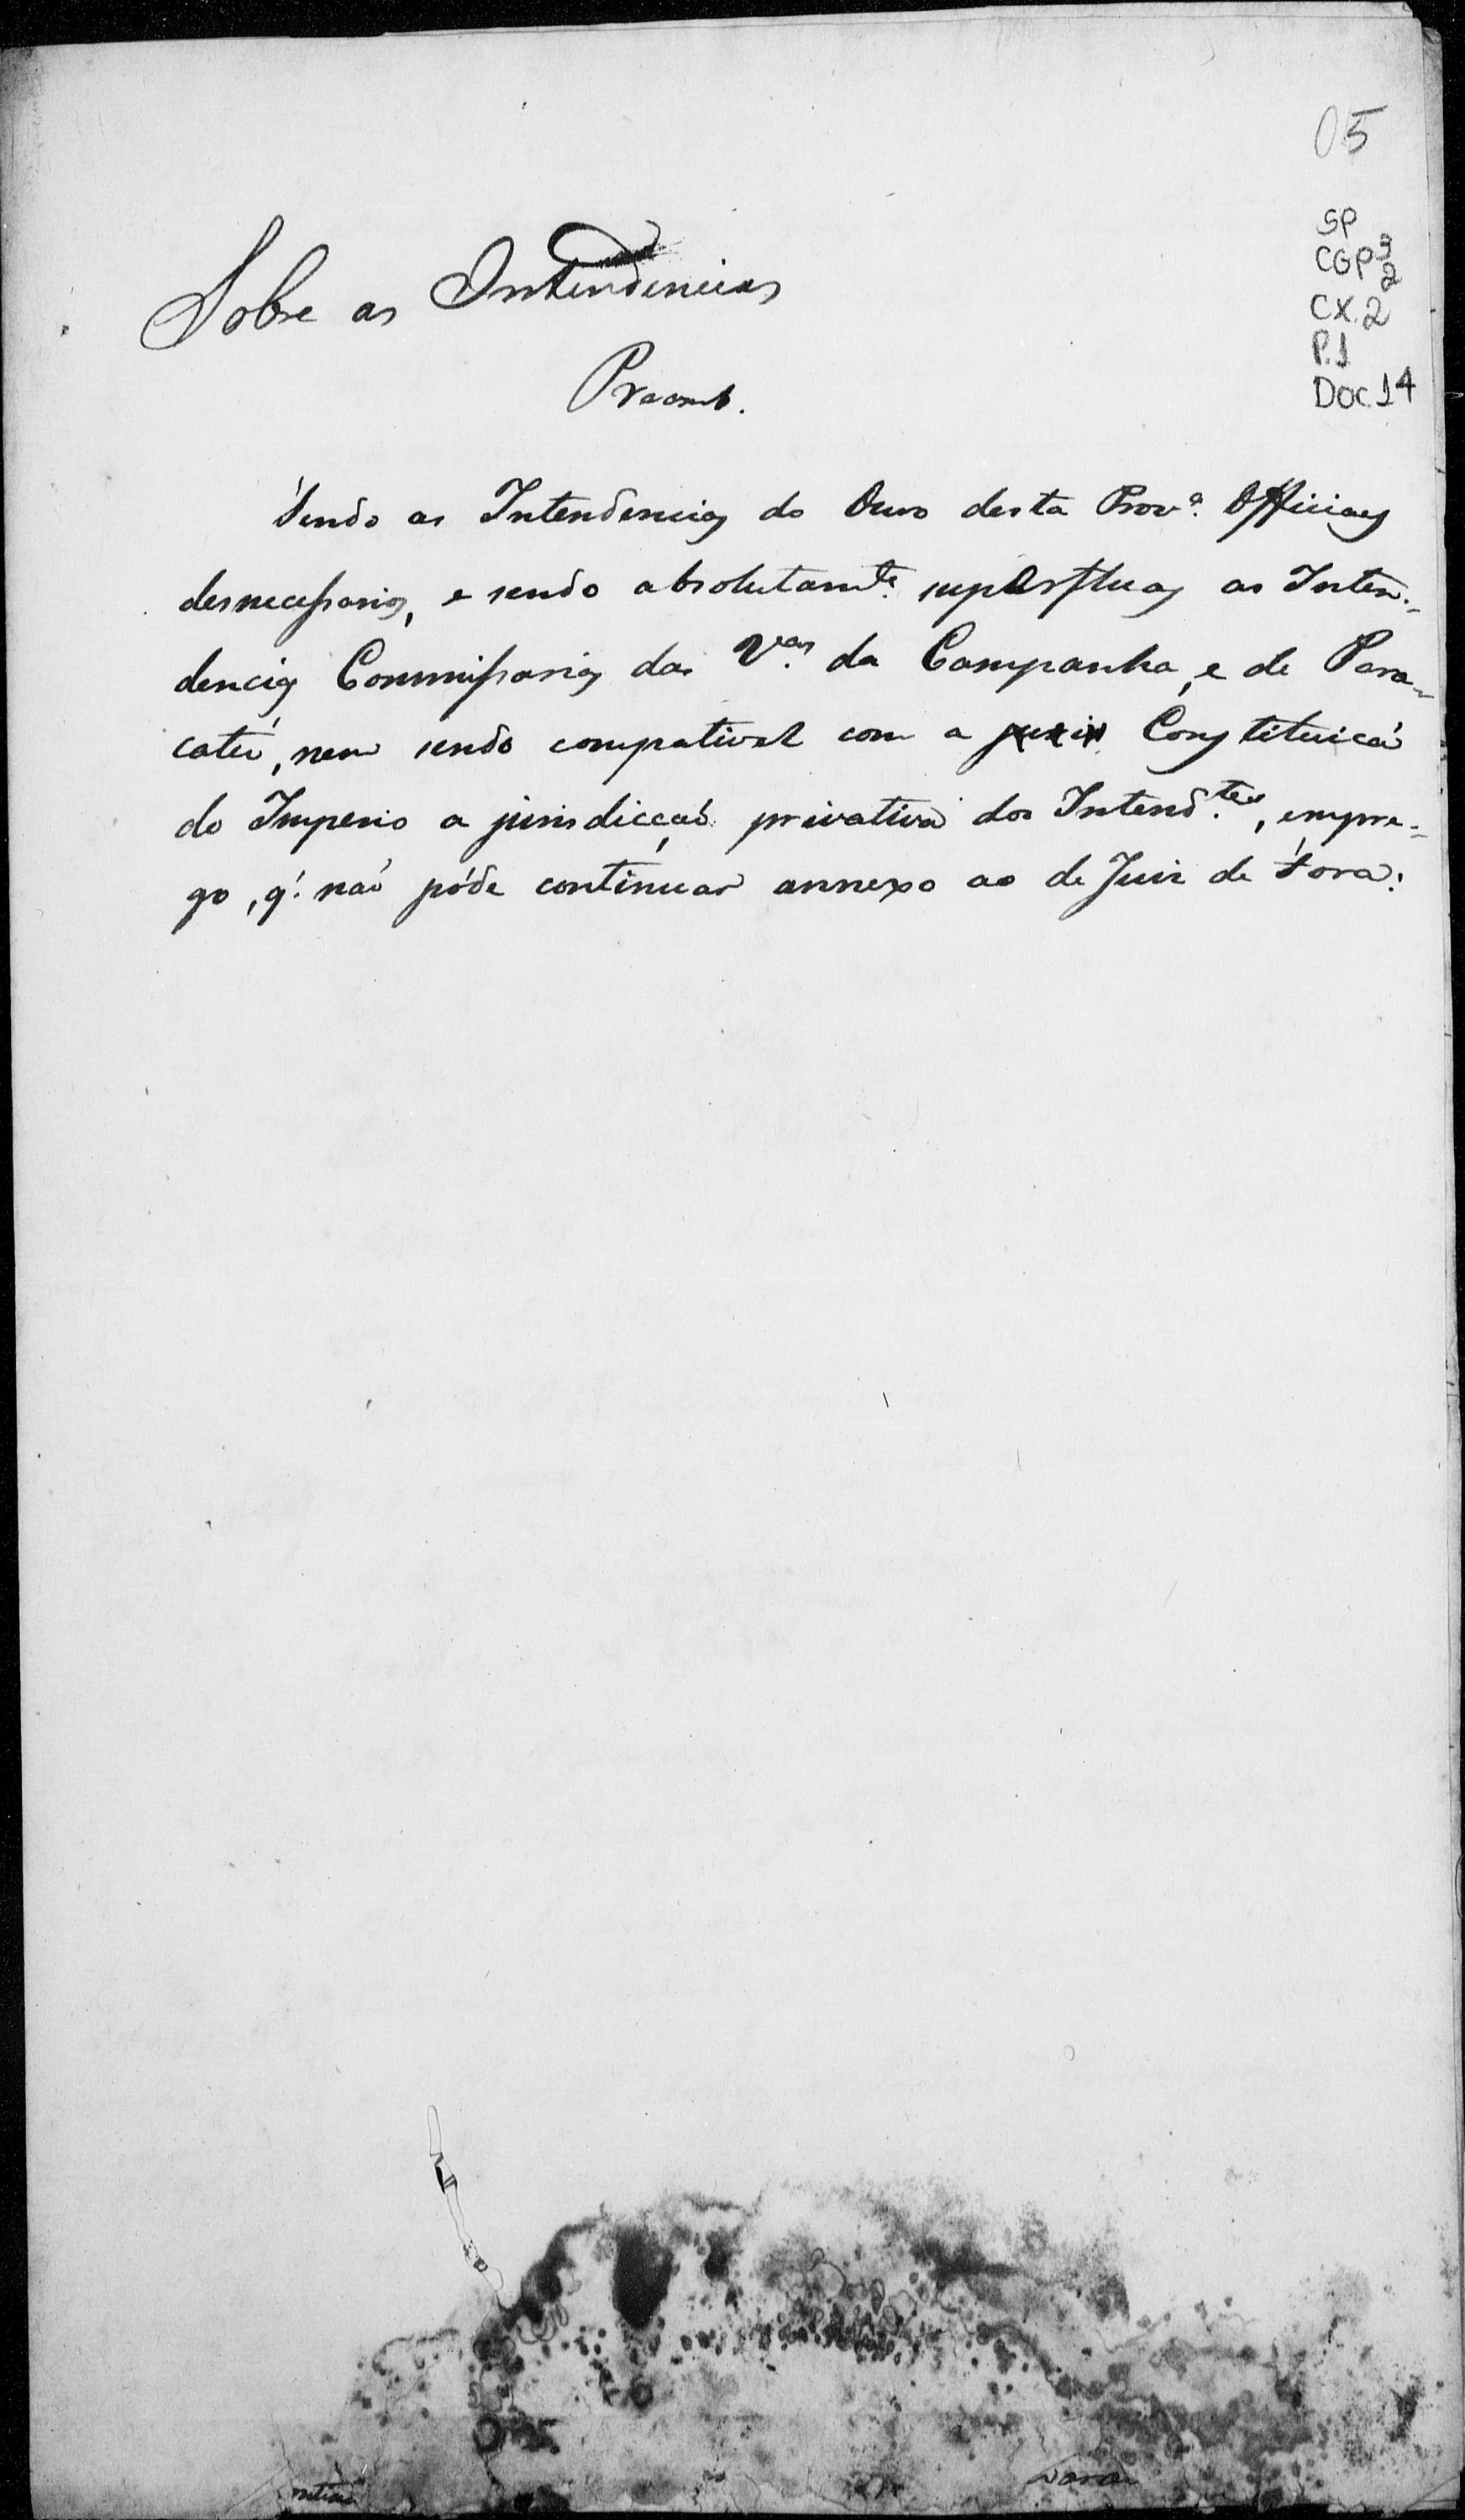 05
SP
CGP 3
2
CX. 2
P. 1
DOC. 14
Sobre as Intendencias
Preamb.
Sendo as Intendencias do Ouro desta Prov.ª Officias
desnecessarias, e sendo absolutam.te superfluas as Inten-
dencias Commissarias das V.as da Campanha, e de Para-
catú, nem sendo compativel com a Constituicaõ
do Imperio a jurisdicçaõ privativa dos Intend.tes, empre-
go, q.' naõ póde continuar annexo ao de Juiz de Fora: